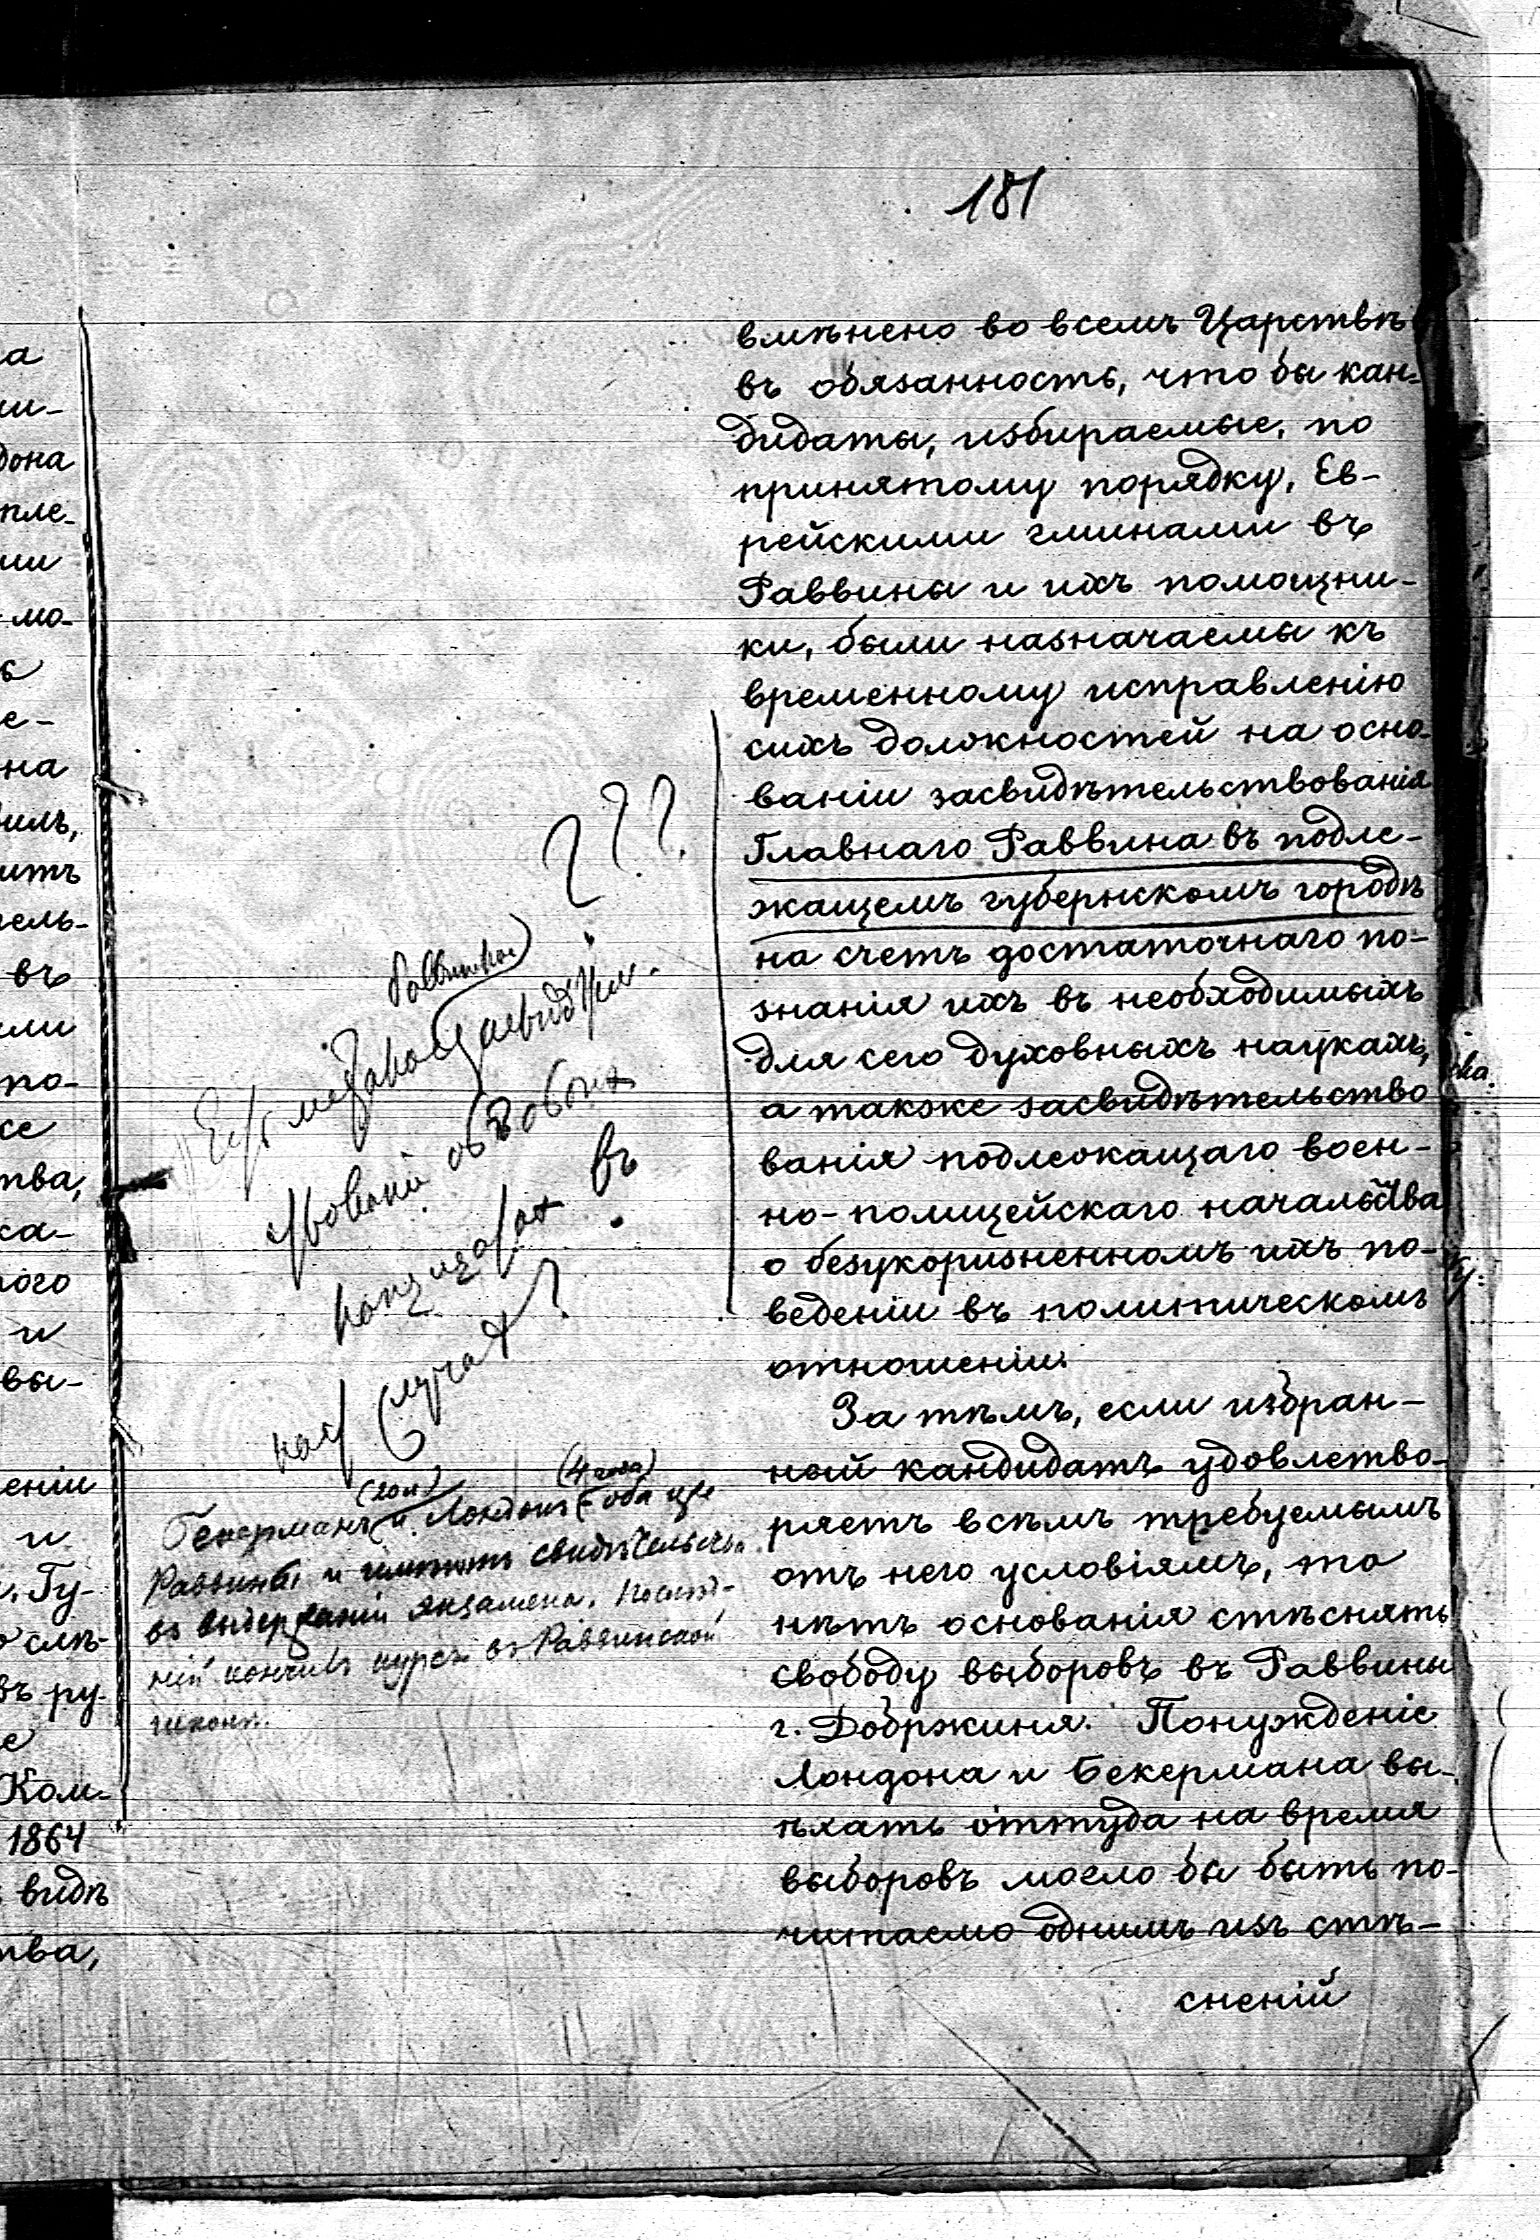 181
вмѣнено во всемъ Царствѣ
въ обязанность, что бы кан-
дидаты, избираемые, по
принятому порядку, Ев-
рейскими гминами въ
Раввины и ихъ помощни-
ки, были назначаемы къ
временному исправленію
сихъ должностей на осно-
ваніи засвидѣтельствованія
Главнаго Раввина въ подле-
жащемъ губернскомъ городѣ
на счетъ достаточнаго по-
знанія ихъ въ необходимыхъ
для сего духовныхъ наукахъ,
а также засвидѣтельство
ванія подлежащаго воен-
но-полицейскаго начальства
о безукоризненномъ ихъ по-
веденіи въ политическомъ
отношеніи.
За тѣмъ, если избран-
ный кандидатъ удовлетво-
ряетъ всѣмъ требуемымъ
отъ него условіямъ, то
нѣтъ основанія стѣснять
свободу выборовъ въ Раввины
г. Добржиня. Понужденіе
Лондона и Бекермана вы-
ѣхать оттуда на время
выборовъ могло бы быть по-
читаемо однимъ изъ стѣ-
сненій
???
объ обоихъ
въ
случаѣ?
Бекерманъ и Лондонъ - оба
Раввины и имѣютъ свидѣтельства
въ выдержаніи экзамена. Послѣд-
ній кончилъ курсъ въ Раввинской
школѣ.
а
ми-
дона
пле-
ии
мо-
ь
е-
на
вилъ,
итъ
тель-
въ
ими
по-
се
тва,
ка-
ного
и
вы-
еніи
и
. Гу-
о слѣ-
въ ру-
е
Ком-
1864
видѣ
тва,